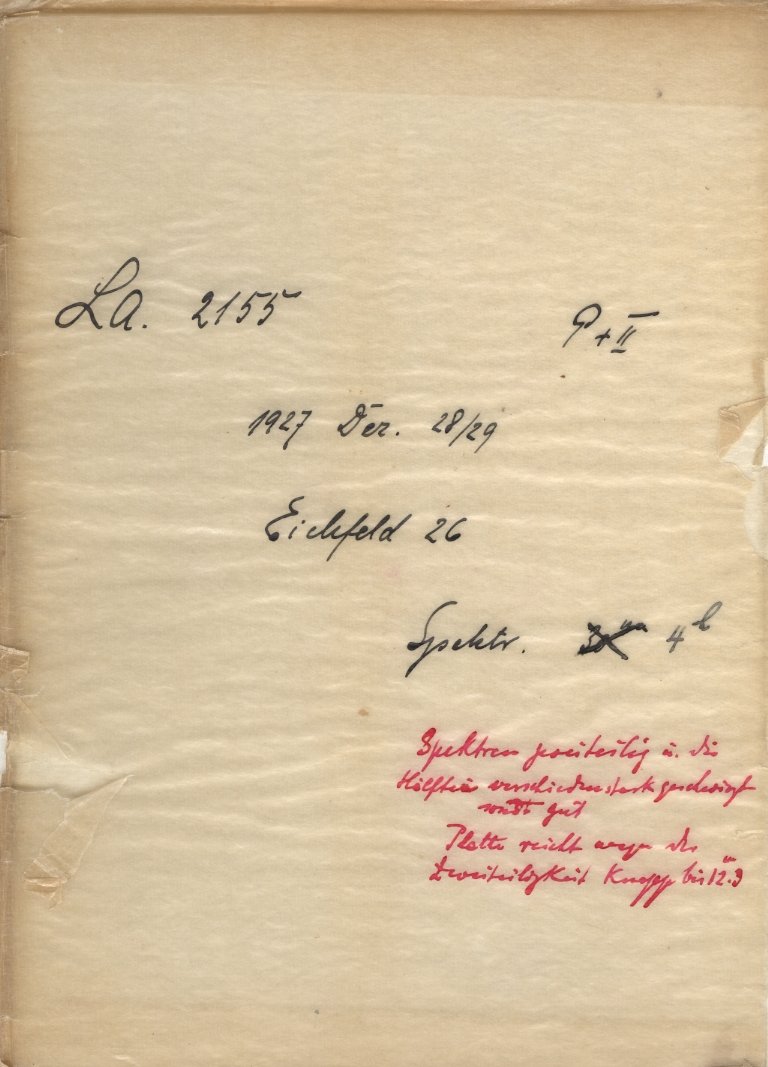 La. 2155
P + II
1927 Dez. 28/29
Eichfeld 26
Spektr. 4h
Spektren zweiteilig u. die
Hälften verschieden stark geschwärzt
sonst gut
Platte reicht wegen der
Zweiteiligkeit knapp bis 12.m3